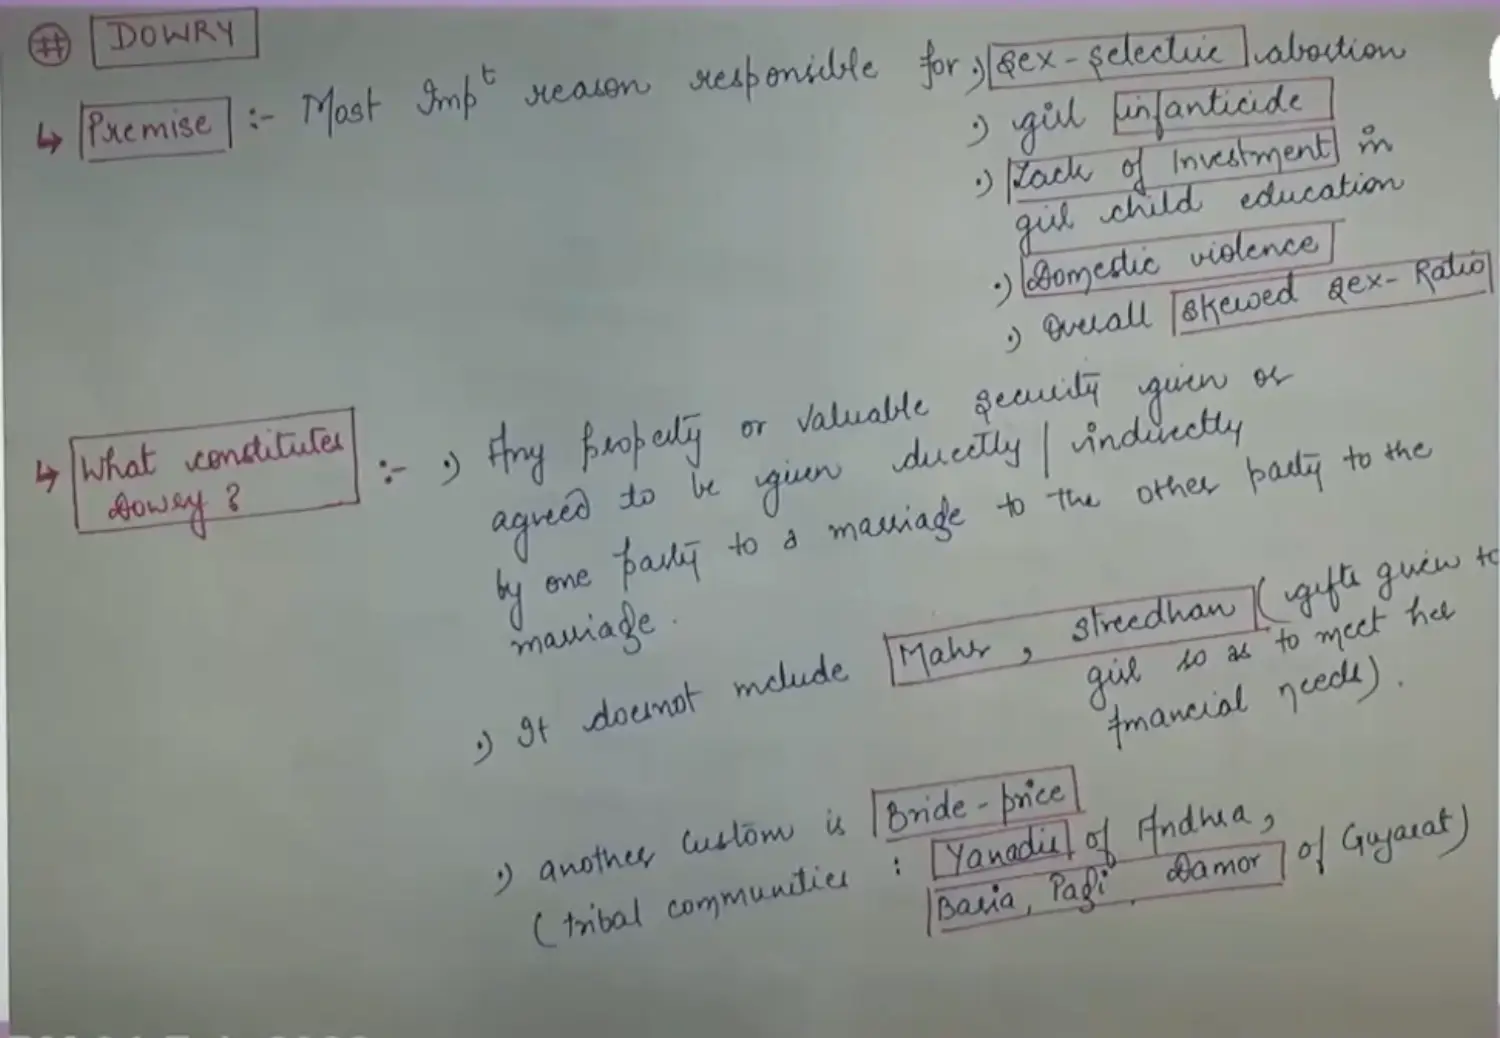 # DOWRY
↳ Premise :- Most Impt reason responsible for •) sex-selective abortion
•) girl infanticide
•) Lack of Investment in
girl child education
•) Domestic violence
•) Overall skewed sex-Ratio
↳ What constitutes
Dowry ? :- •) Any property or valuable security given or
agreed to be given directly | indirectly
by one party to a marriage to the other party to the
marriage.
•) It doesnot include Mahr, streedhan ( gifts given to
girl so as to meet her
financial needs).
•) another custom is Bride-price
( tribal communities : Yanadis of Andhra,
Baria, Pagi, Damor of Gujarat)